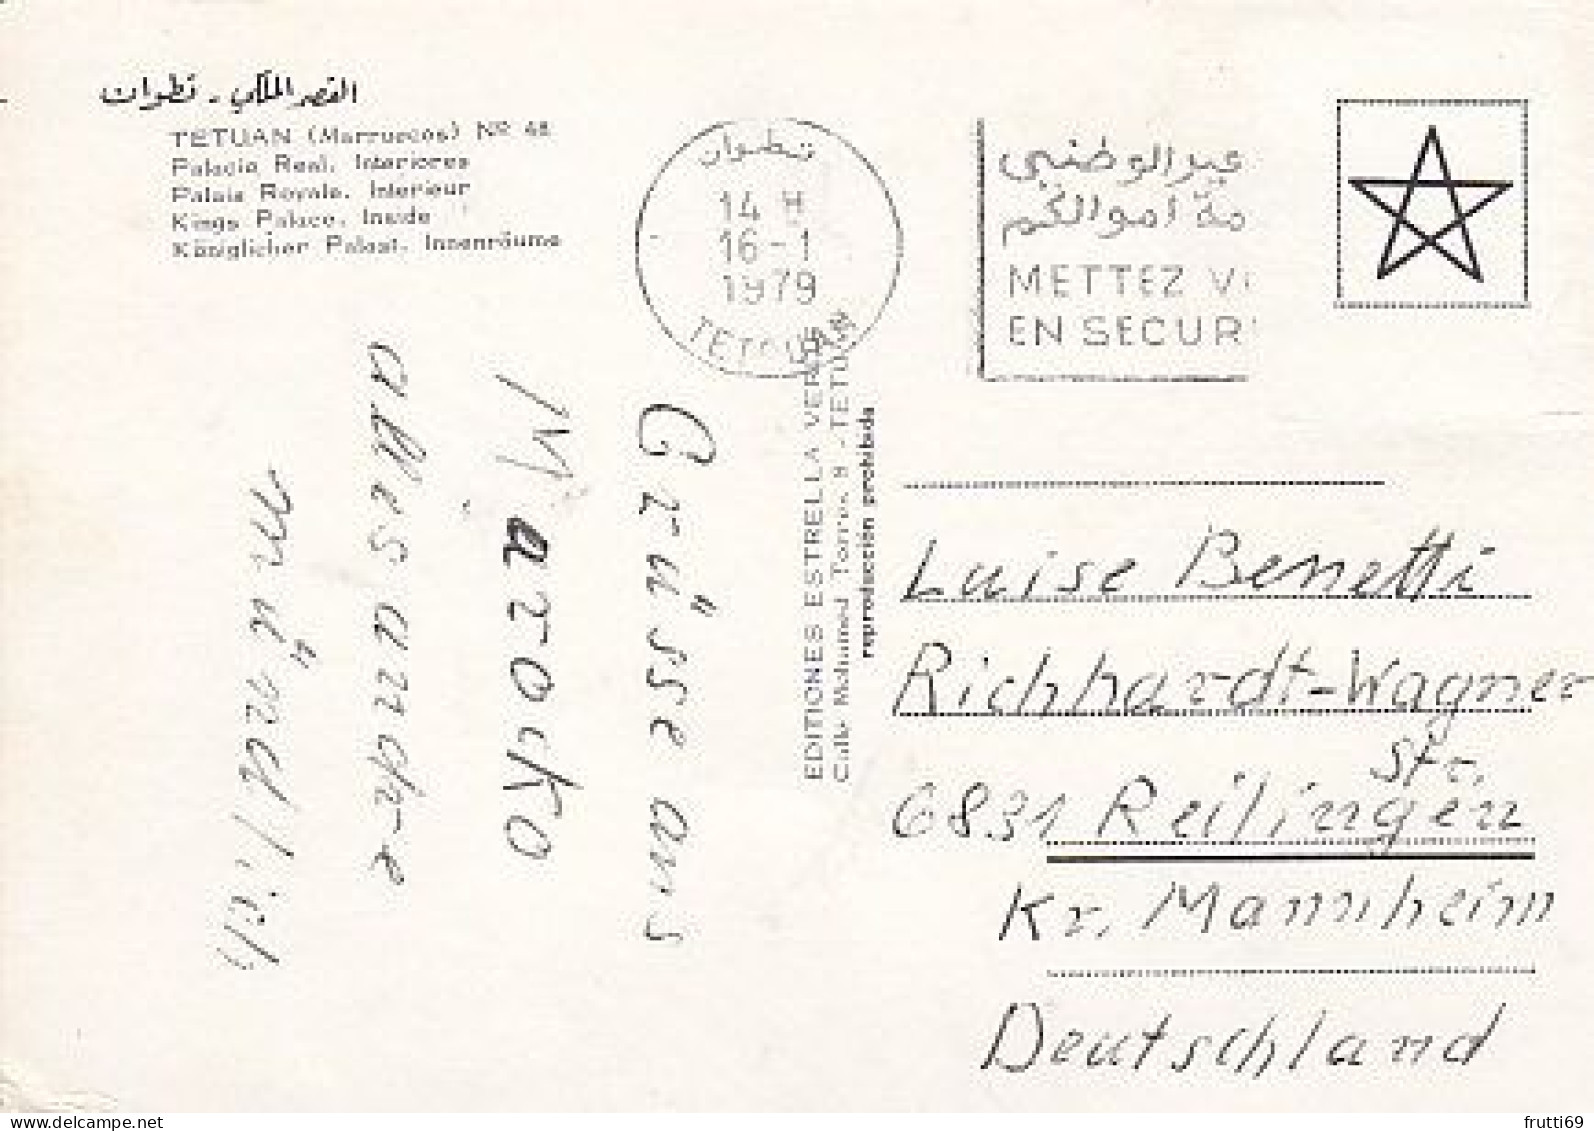 القصر الملكي - تطوان
TETUAN (Marruecos) Nº 48
Palacio Real. Interiores
Palais Royale. Interieur
Kings Palace. Inside
Königlicher Palast. Innenräume
تطوان
14 H
16-1
1979
TETOUAN
الوطني
أموالكم
METTEZ V
EN SECUR
EDITIONES ESTRELLA
Calle Mohamed Torres, 9 - TETUAN
reproducción prohibida
Grüsse aus
Marocko
alles
mündlich
Luise Benetti
Richhardt-Wagner
Str.
6831 Reilingen
Kr. Mannheim
Deutschland
frutti69